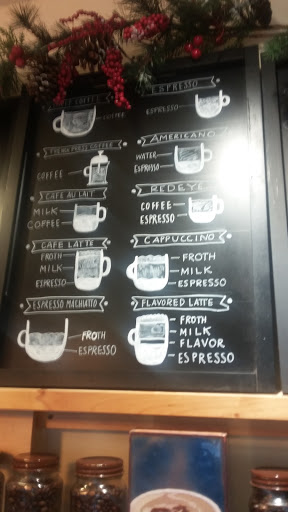 COFFEE
COFFEE
FRENCH PRESS COFFEE
COFFEE
CAFE AU LAIT
MILK
COFFEE
CAFE LATTE
FROTH
MILK
ESPRESSO
ESPRESSO MACHIATTO
FROTH
ESPRESSO
ESPRESSO
ESPRESSO
AMERICANO
WATER
ESPRESSO
REDEYE
COFFEE
ESPRESSO
CAPPUCCINO
FROTH
MILK
ESPRESSO
FLAVORED LATTE
FROTH
MILK
FLAVOR
ESPRESSO